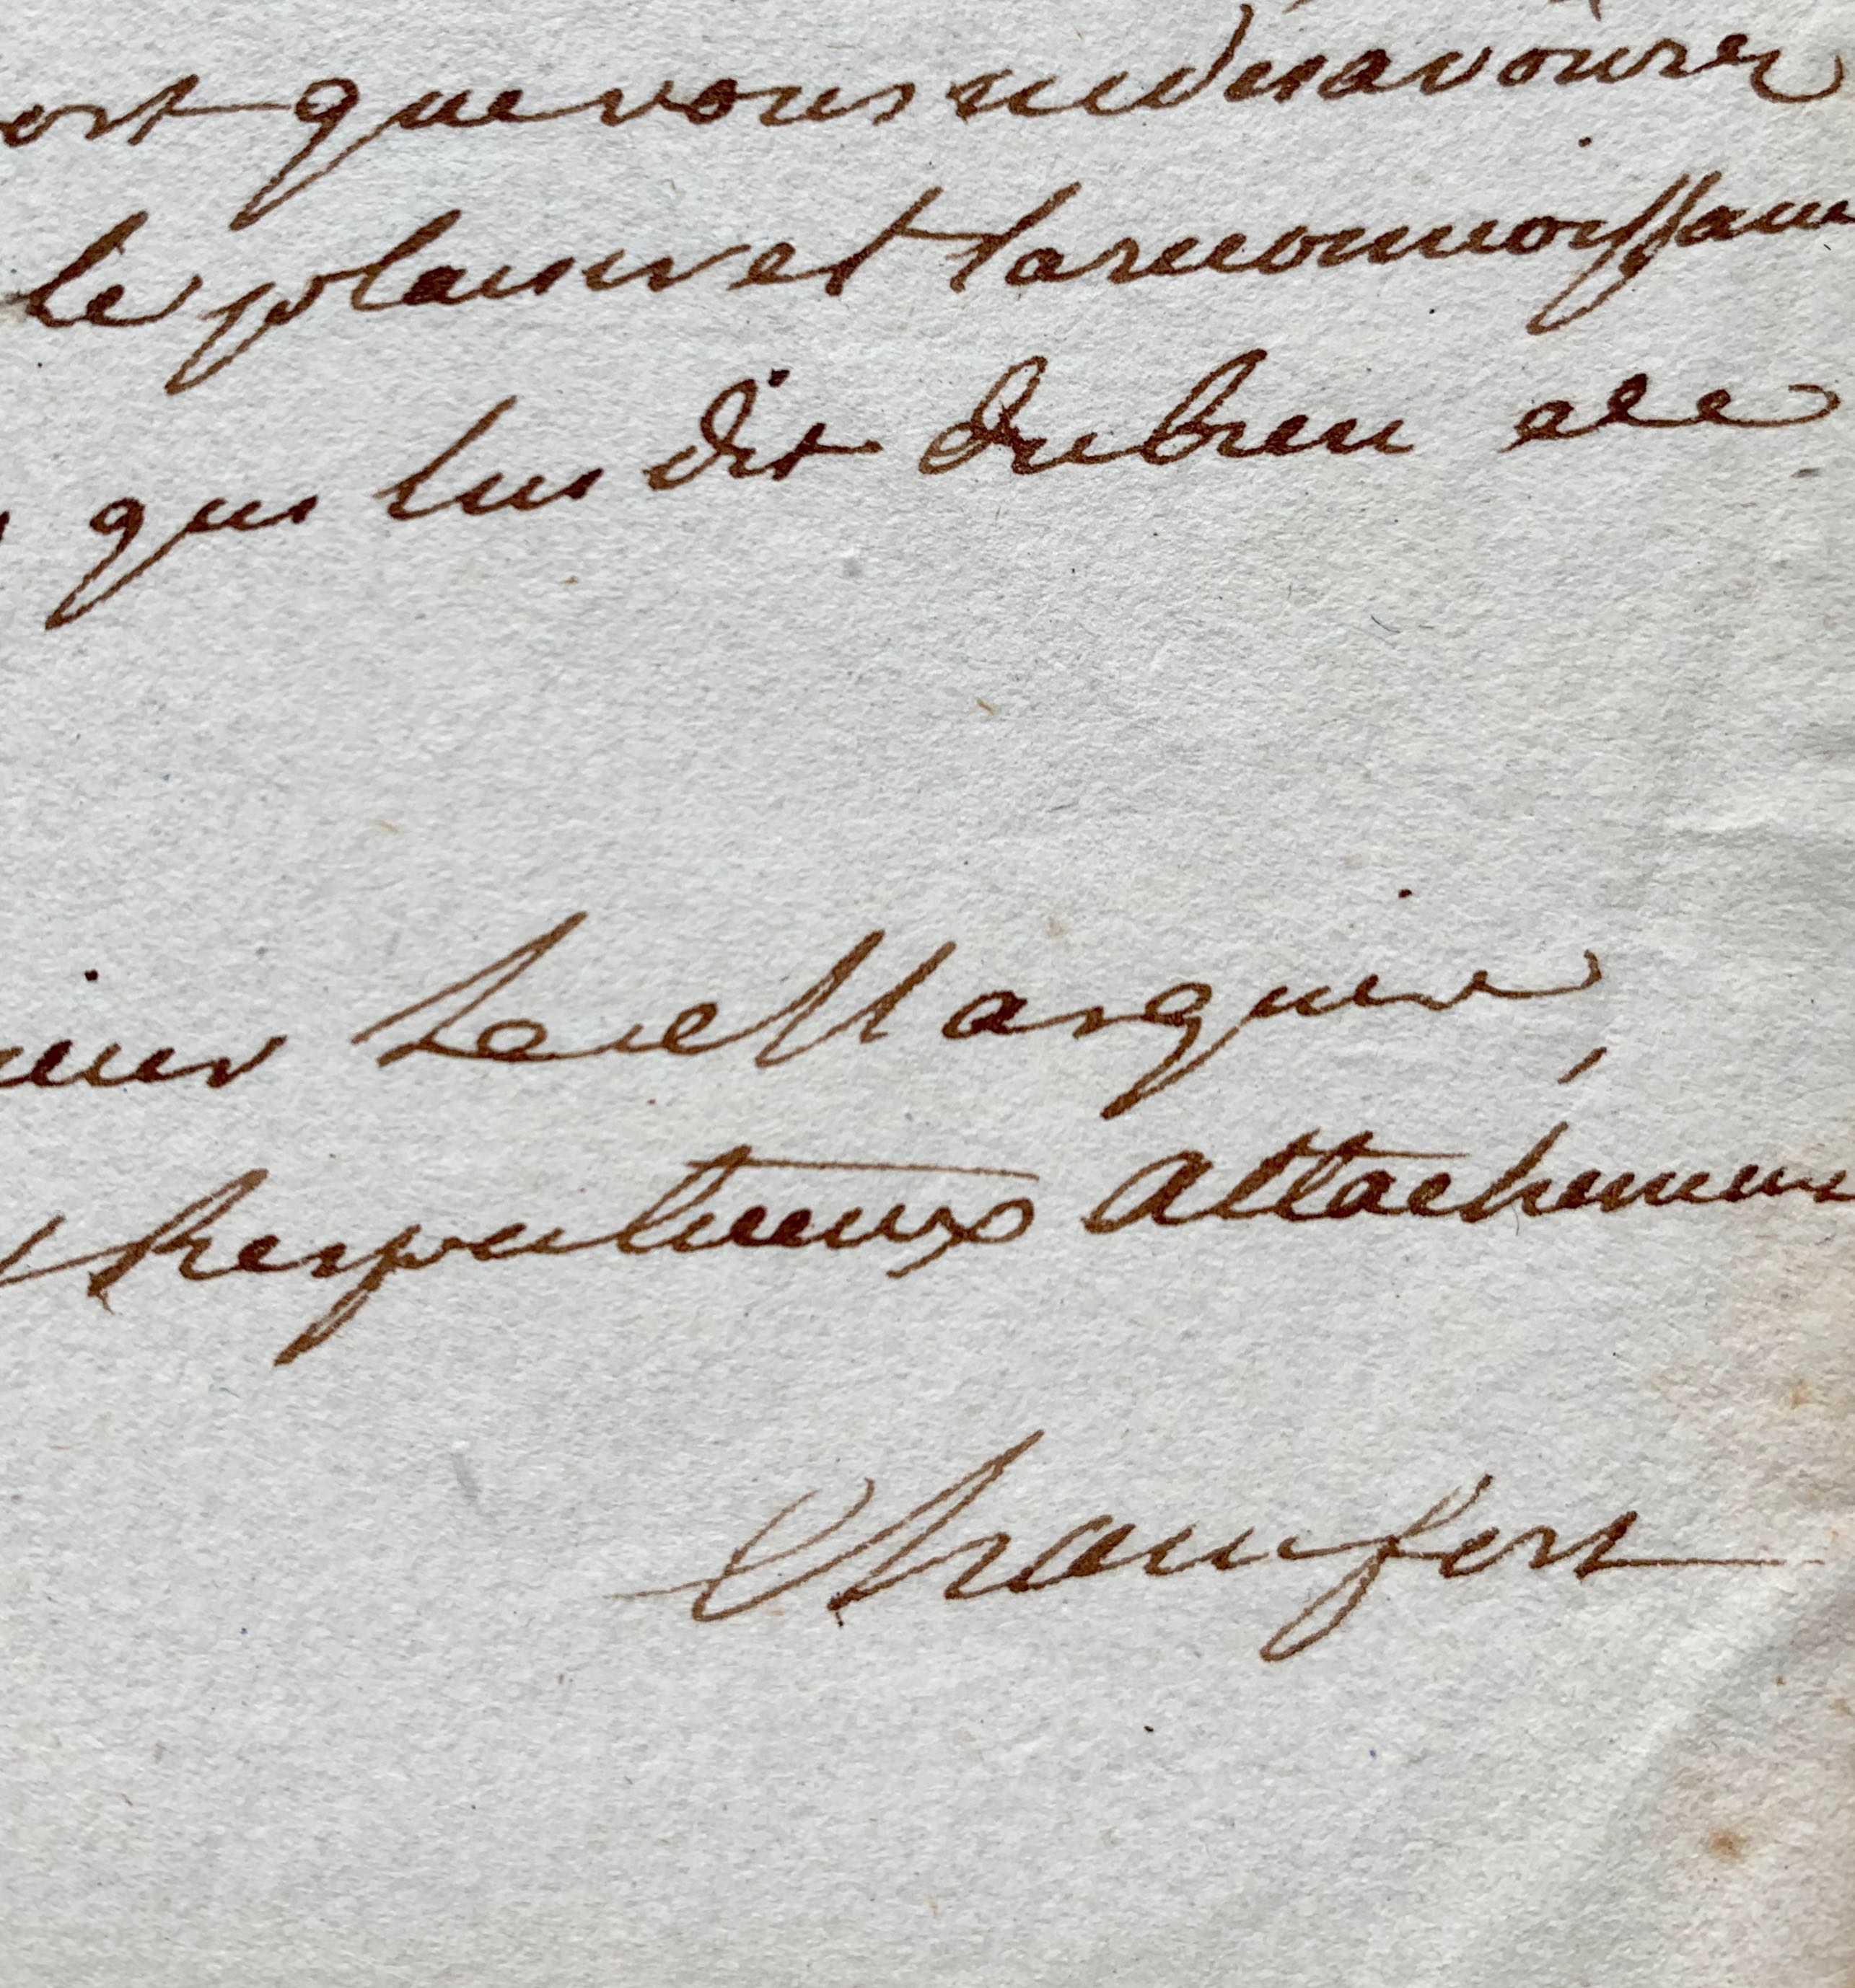 ort que vous ne desavoürez
le plaisir et la reconnoissance
qui lui dit du bien
ieur Le Marquis
Respectueux Attachement
Chamfort